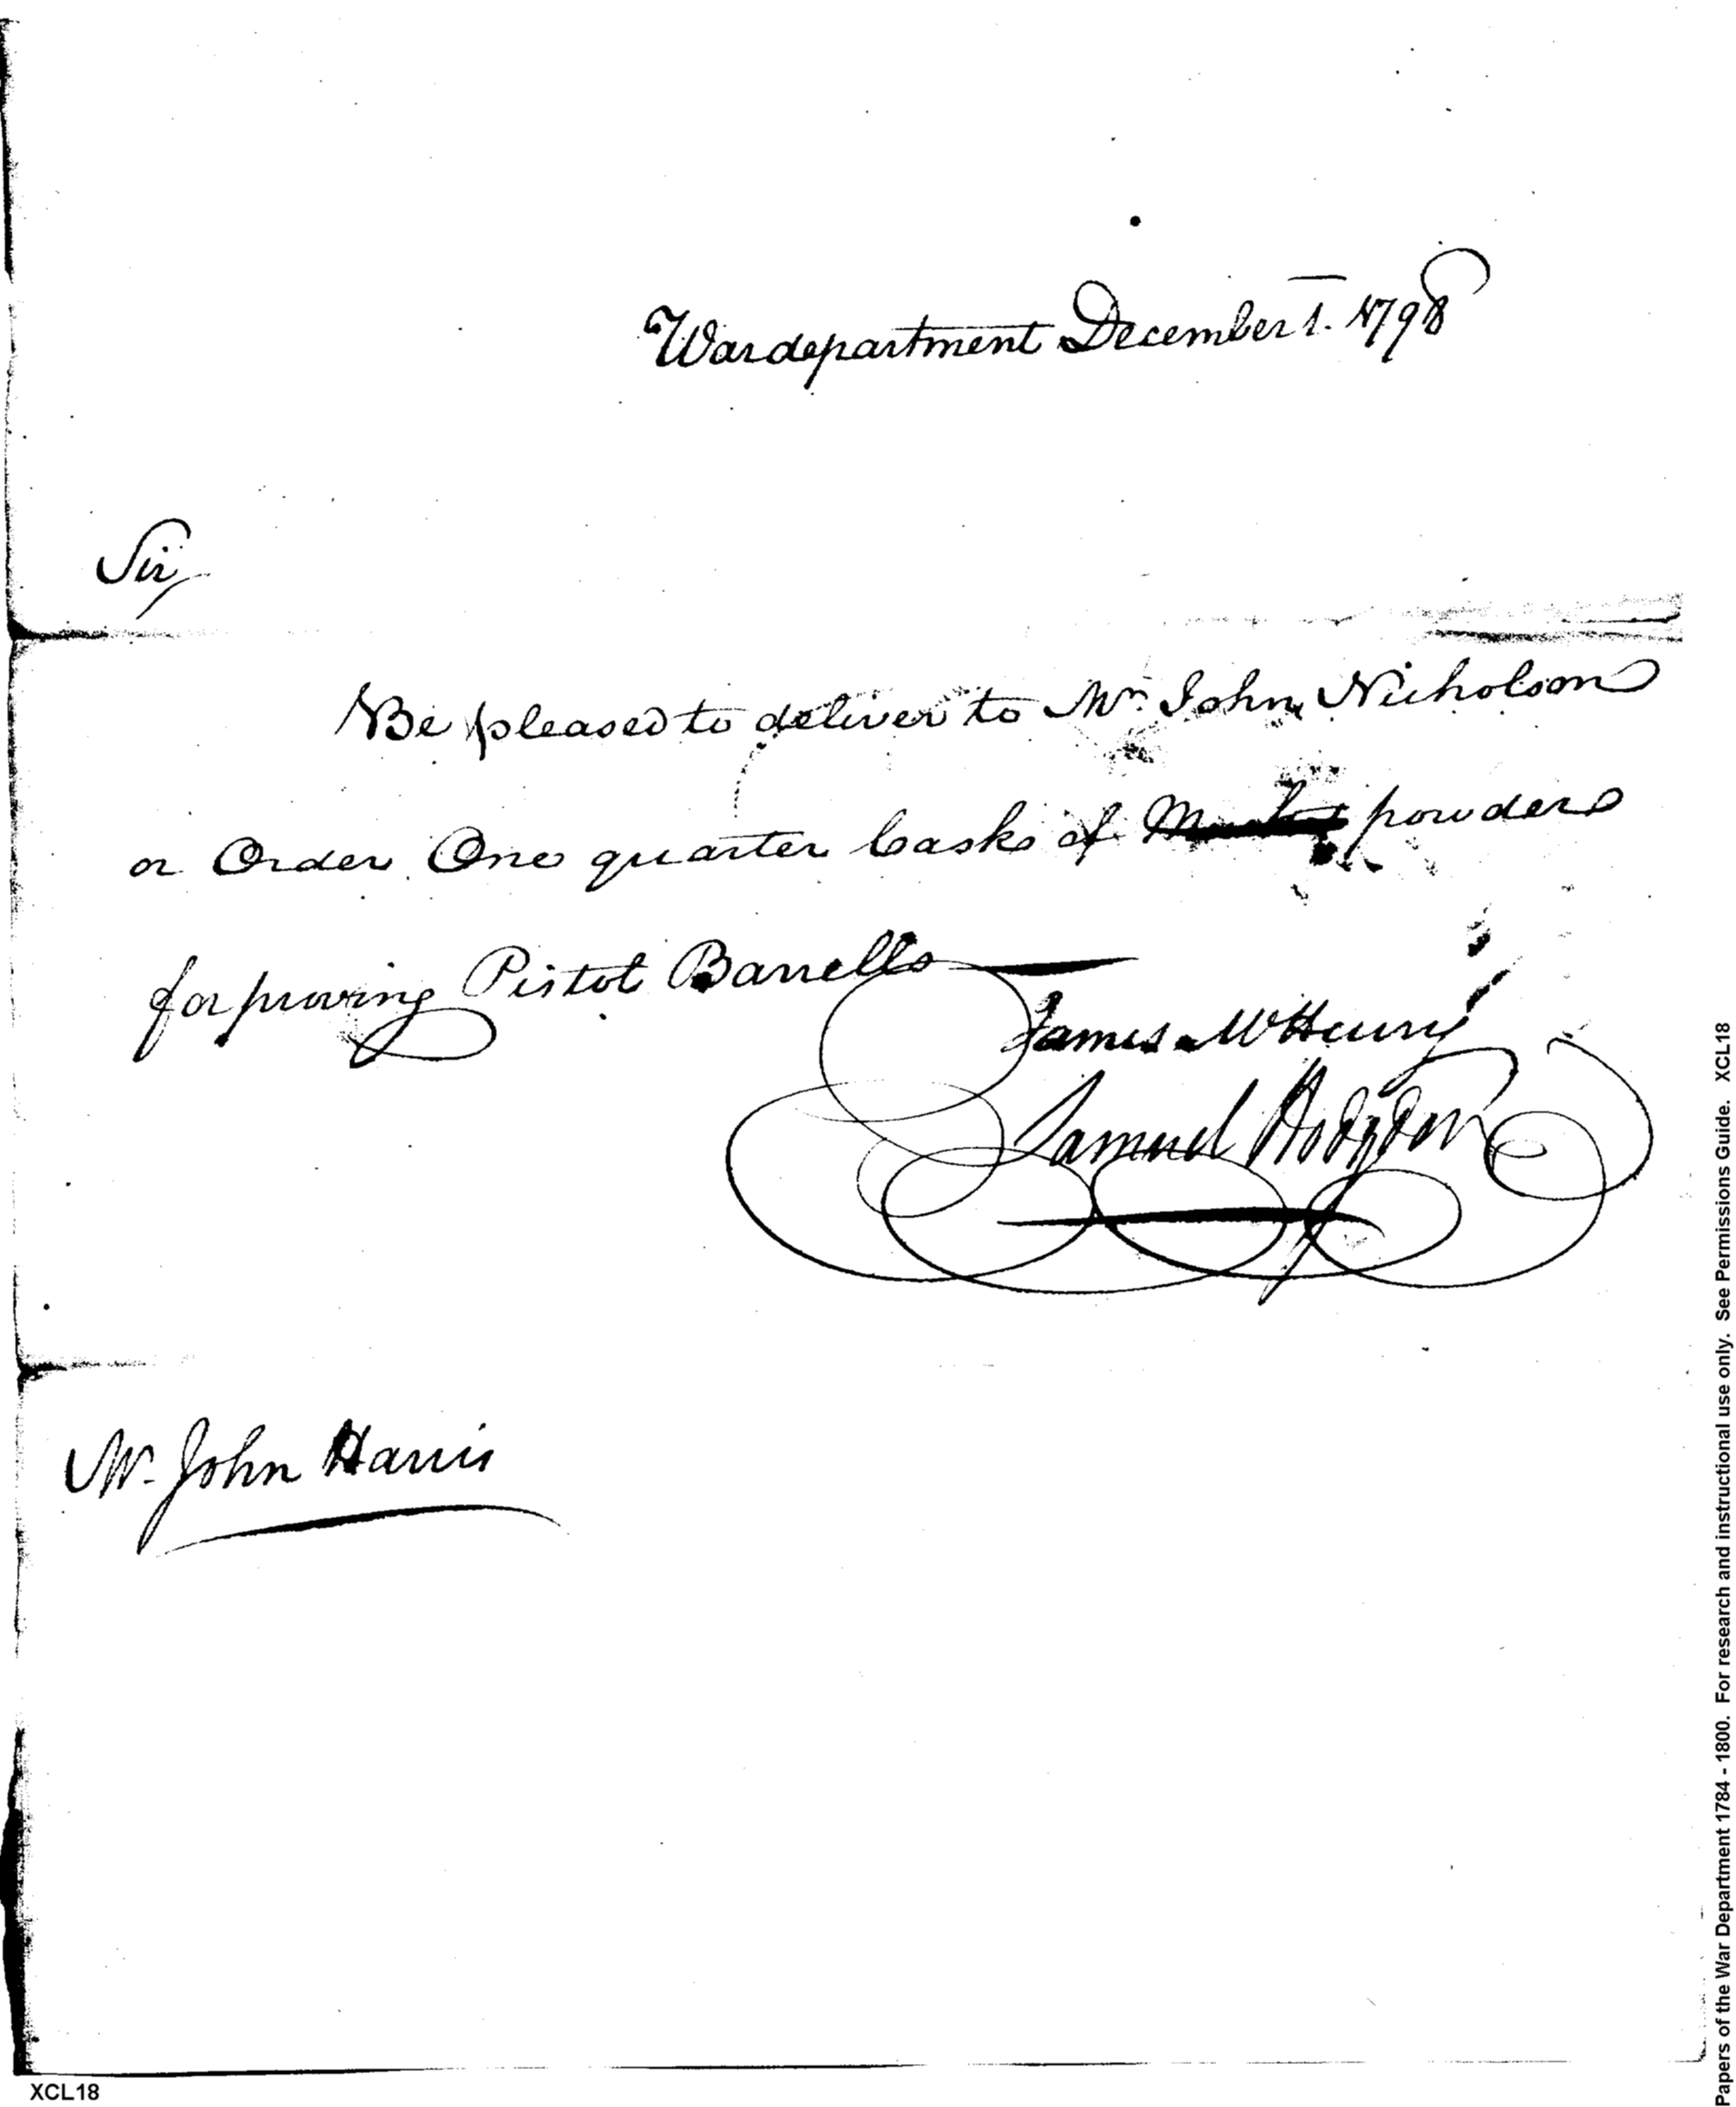 War department December 1. 1798
Sir,
Be pleased to deliver to Mr. John Nicholson
or Order One quarter Cask of powder
for proving Pistol Barrells
James McHenry
Samuel Hodgdon
Mr. John Harris
XCL18
Papers of the War Department 1784 - 1800. For research and instructional use only. See Permissions Guide. XCL18